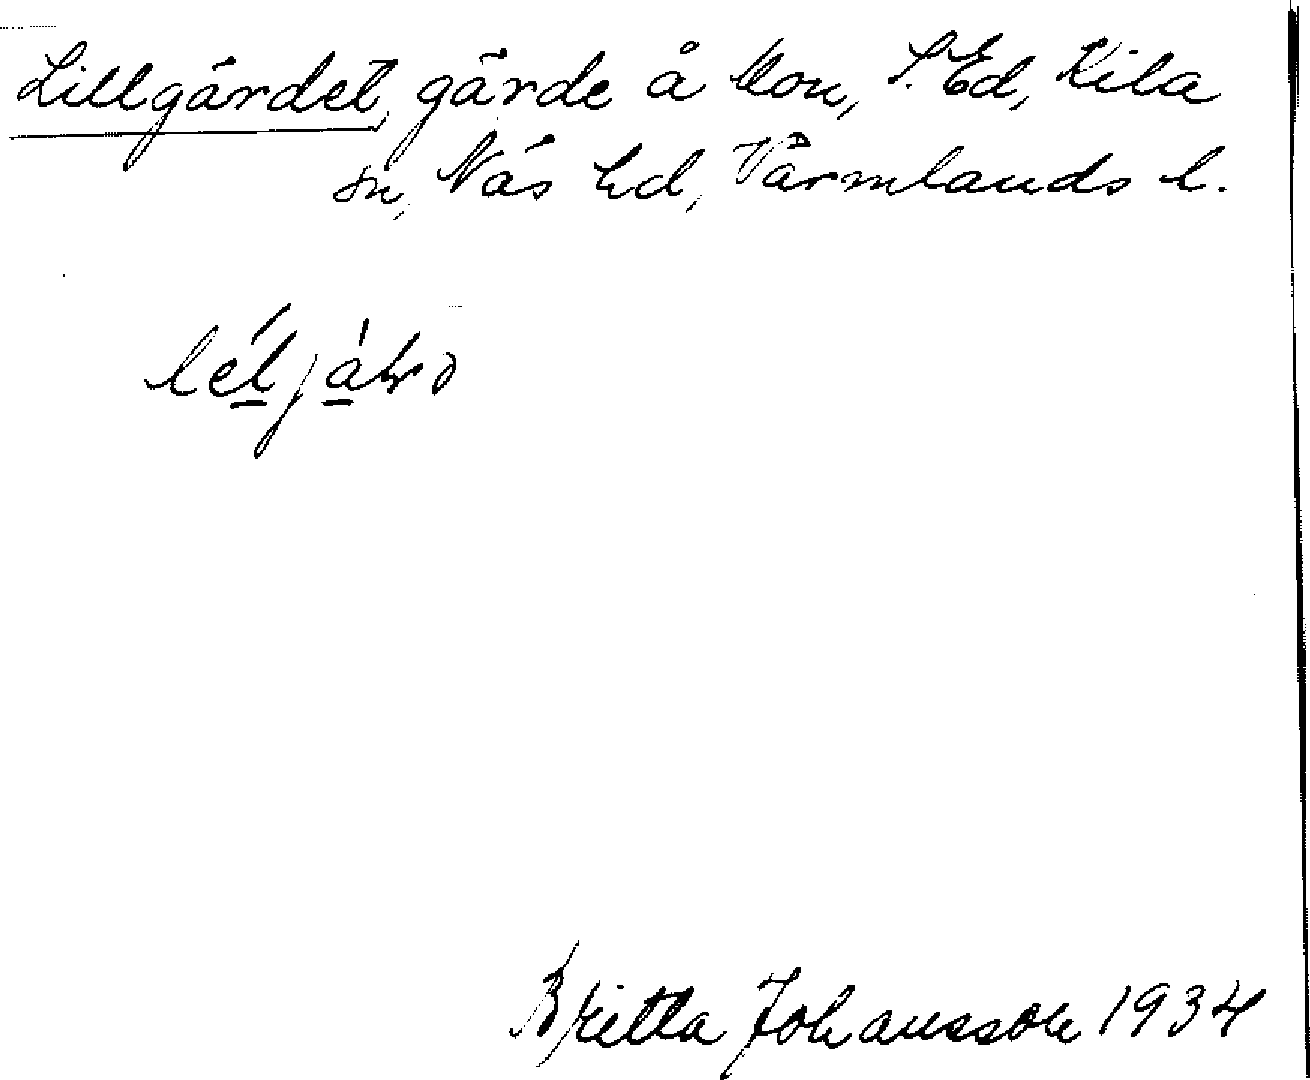 Lillgärdet, gärde å Mon, S. Ed, Kila
sn, Näs hd, Värmlands l.
Britta Johansson 1934